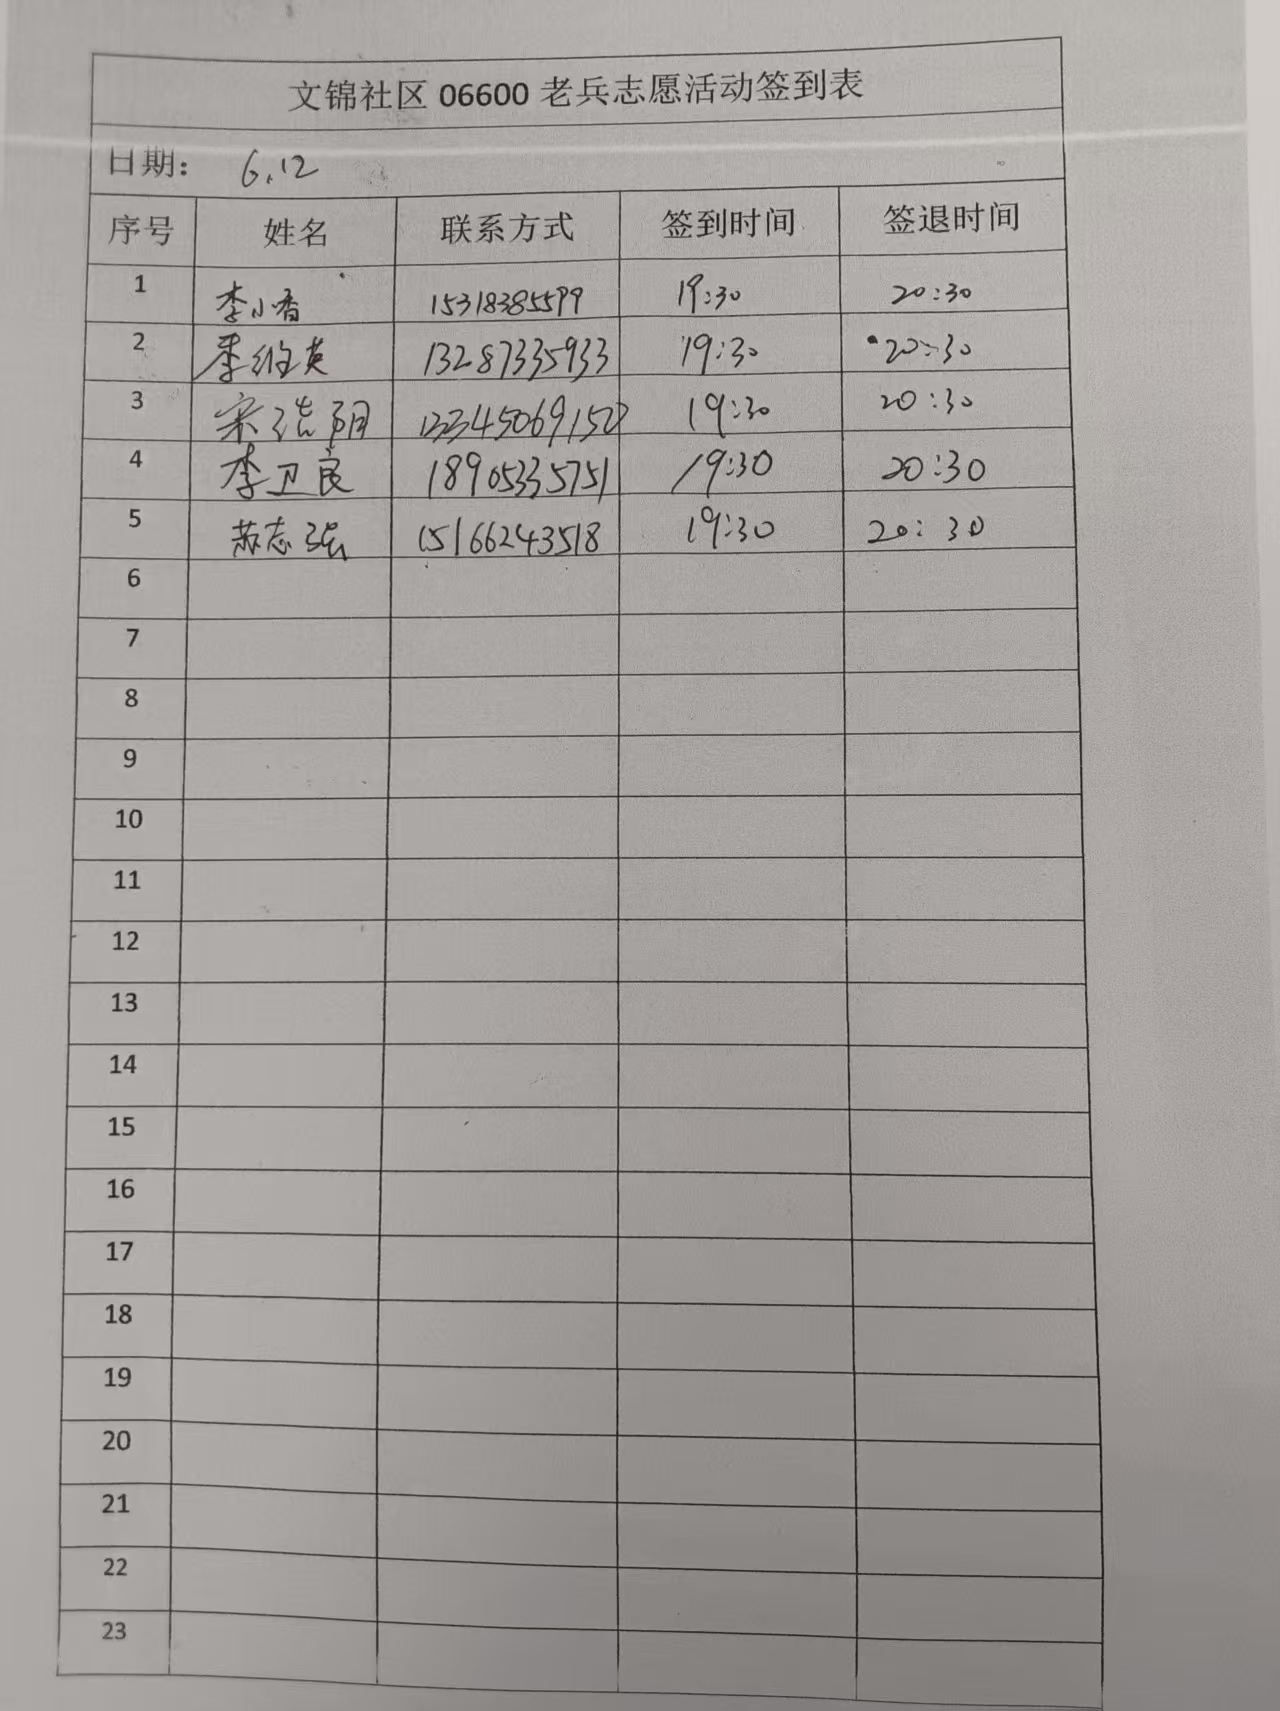 文锦社区 06600 老兵志愿活动签到表
日期： 6.12
序号 姓名 联系方式 签到时间 签退时间
1 李小香 15318385599 19:30 20:30
2 季维英 13287335933 19:30 20:30
3 宋 19:30 20:30
4 李卫良 18905335751 19:30 20:30
5 苏志强 15166243518 19:30 20:30
6
7
8
9
10
11
12
13
14
15
16
17
18
19
20
21
22
23